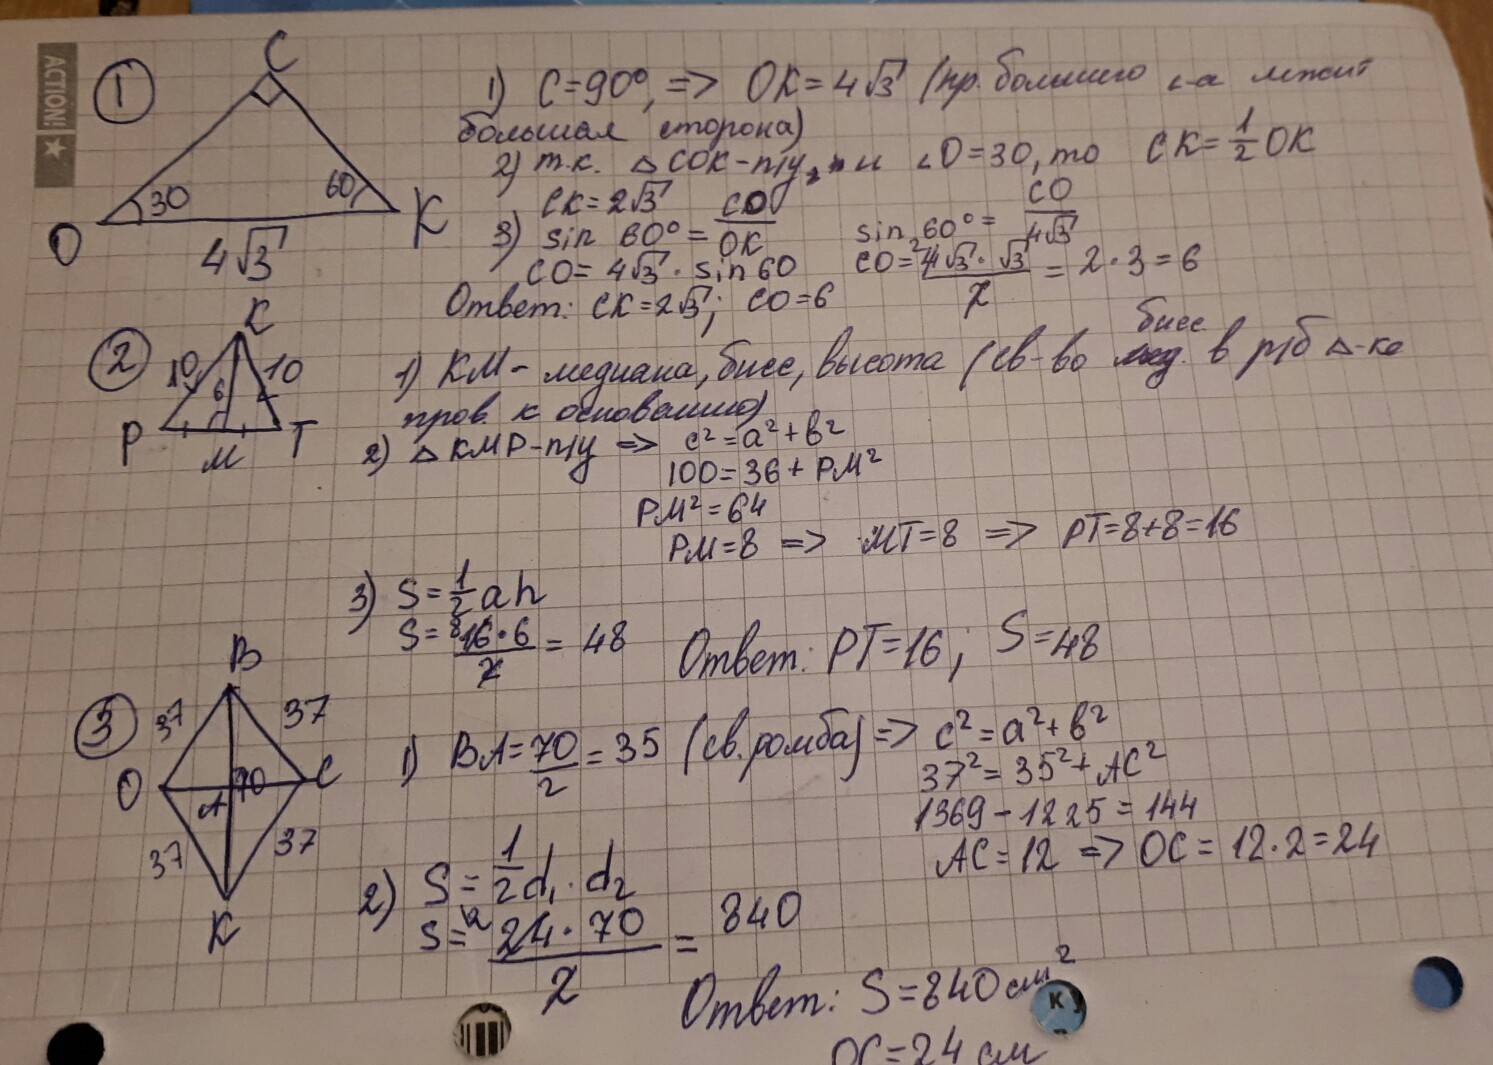 ACTION!
1
C
30
60
O
K
4√3
1) C=90°, => OK=4√3 (пр. большего ∠-а лежит
большая сторона)
2) т.к. △COK-п/у, и ∠O=30, то CK=1/2 OK
CK=2√3
3) sin 60°=CO/OK sin 60°=CO/4√3
CO=4√3·sin60 CO=4√3·√3/2=2·3=6
Ответ: CK=2√3; CO=6
2
K
10
10
6
P
M
T
1) KM-медиана, бисс, высота (св-во бисс. в р/б △-ке
пров. к основанию)
2) △KMP-п/у => c²=a²+b²
100=36+PM²
PM²=64
PM=8 => MT=8 => PT=8+8=16
3) S=1/2 ah
S=16·6/2=48 Ответ: PT=16; S=48
3
B
37
37
O
A
70
C
37
37
K
1) BA=70/2=35 (св. ромба) => c²=a²+b²
37²=35²+AC²
1369-1225=144
AC=12 => OC=12·2=24
2) S=1/2 d₁·d₂
S=24·70/2=840
Ответ: S=840 см²
OC=24 см
К У